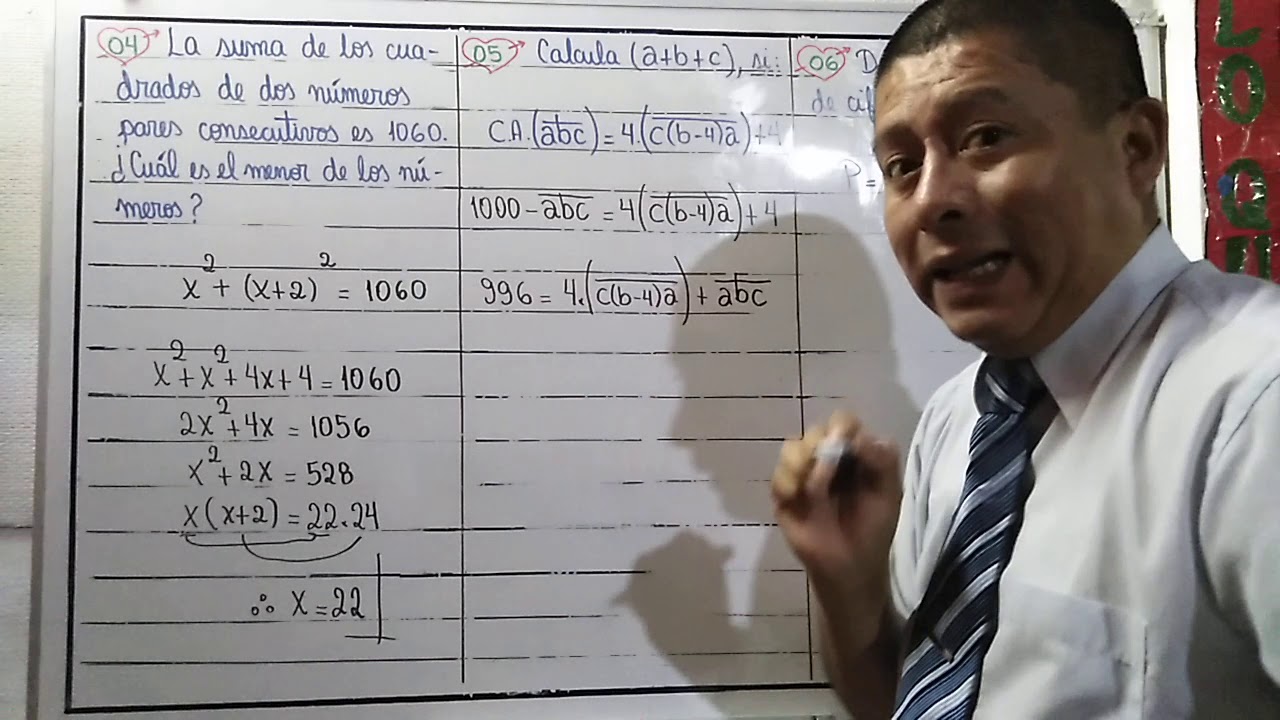 04 La suma de los cua-
drados de dos números
pares consecutivos es 1060.
¿Cuál es el menor de los nú-
meros?
x² + (x+2)² = 1060
x² + x² + 4x + 4 = 1060
2x² + 4x = 1056
x² + 2x = 528
x(x+2) = 22.24
∴ x = 22
05 Calcula (a+b+c), si:
C.A.(a̅b̅c̅) = 4.(c̅(̅b̅-̅4̅)̅a̅) + 4
1000 - a̅b̅c̅ = 4(c̅(̅b̅-̅4̅)̅a̅) + 4
996 = 4.(c̅(̅b̅-̅4̅)̅a̅) + a̅b̅c̅
06 D
de cif
P =
LO QU